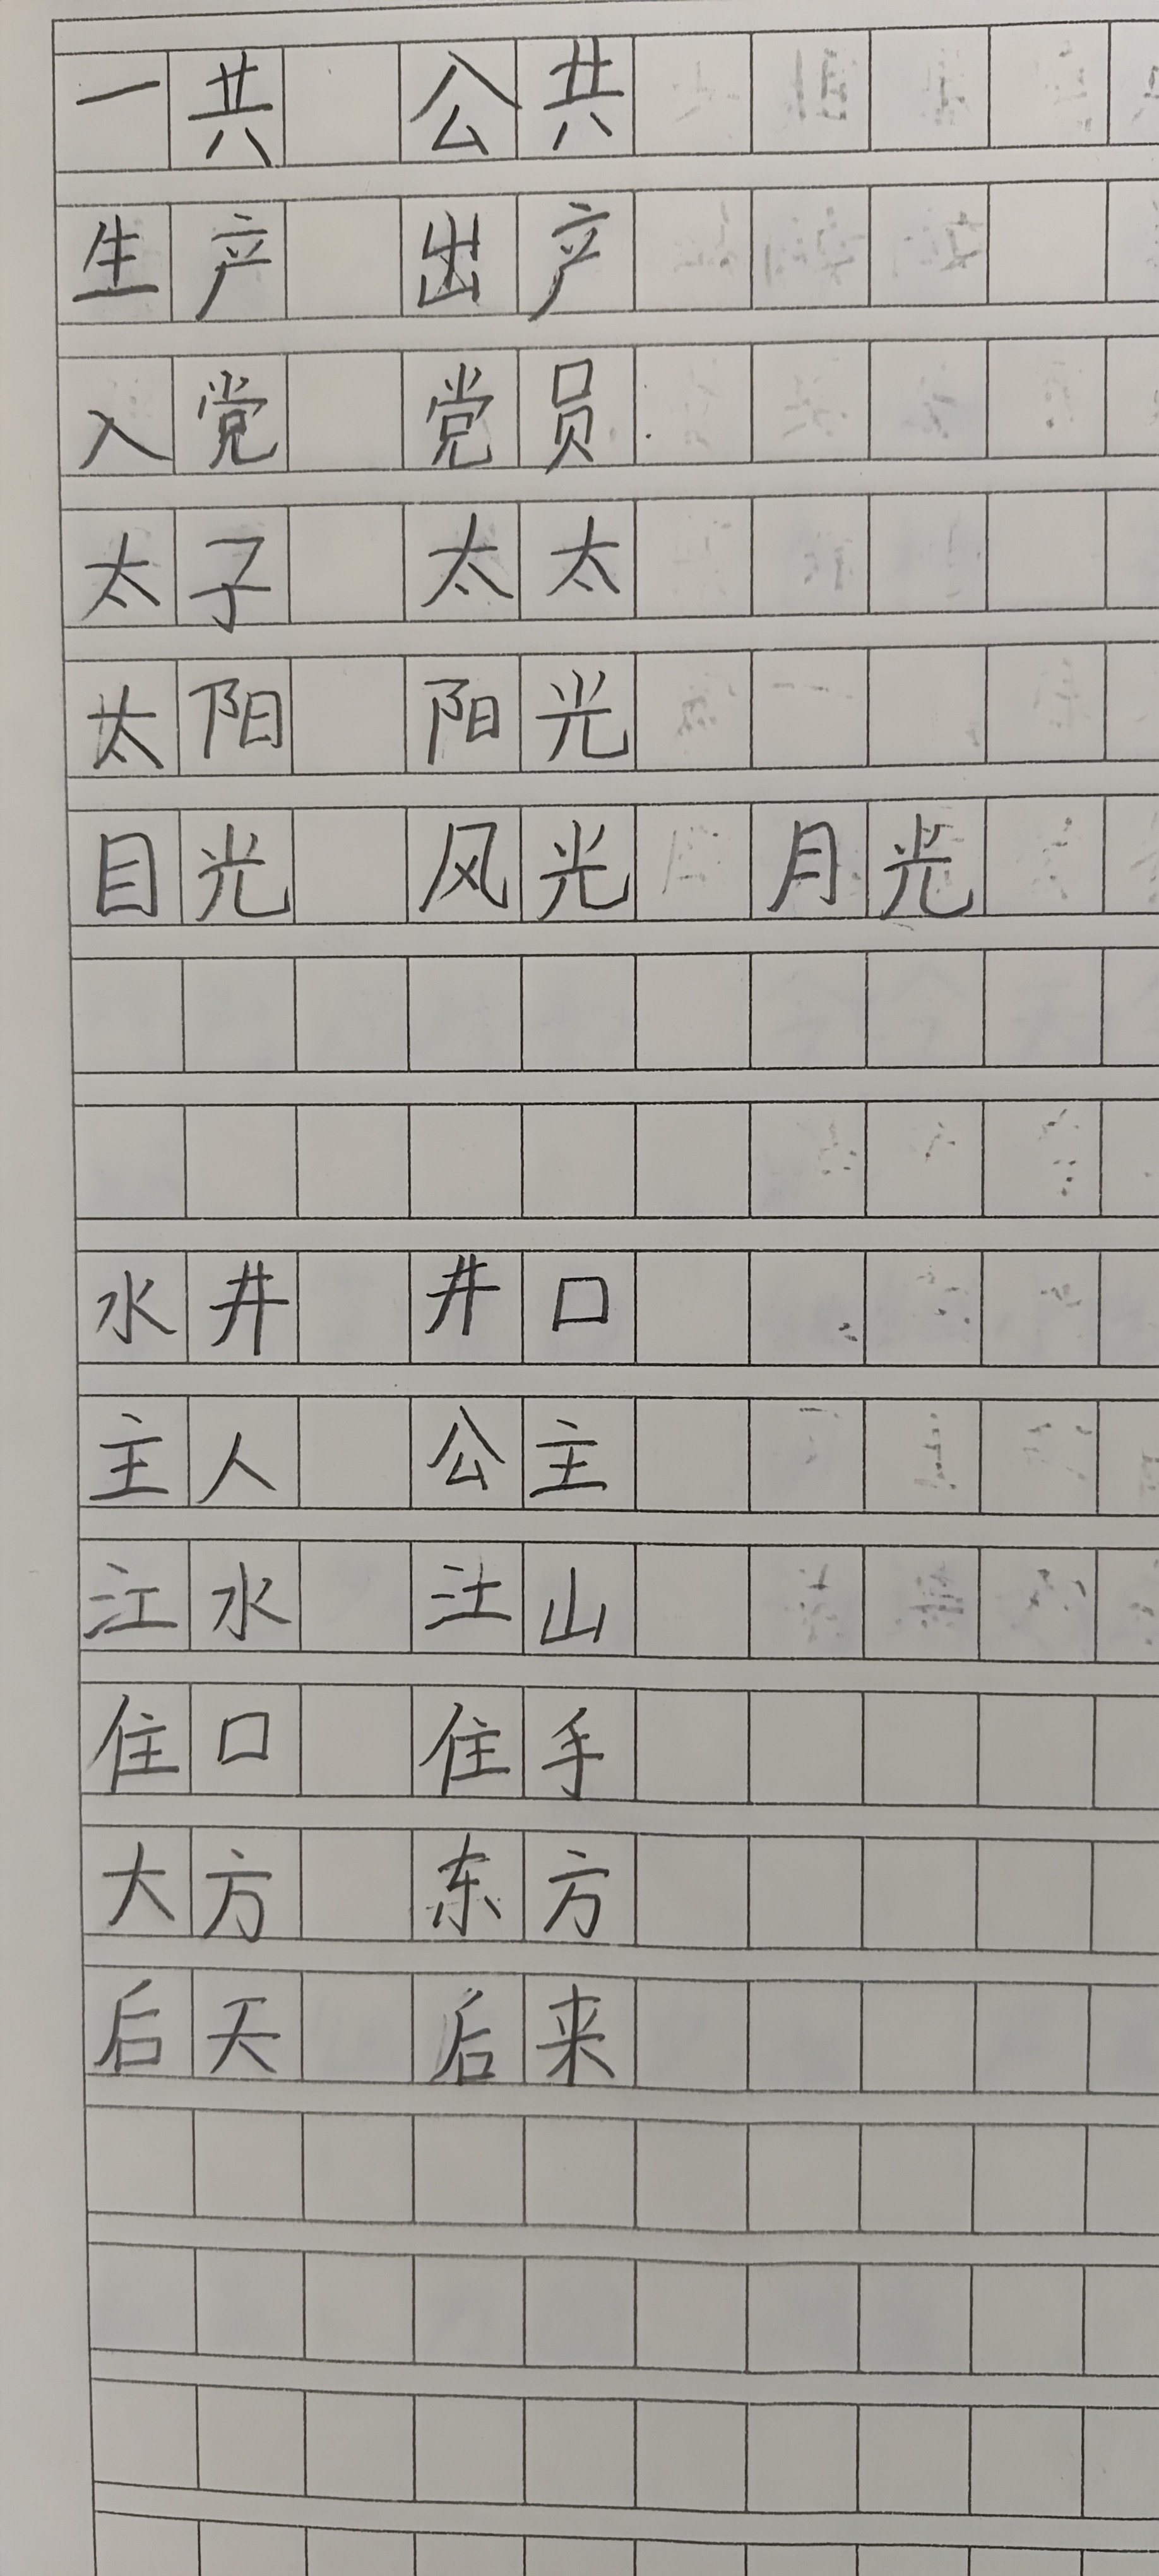 一共 公共
生产 出产
入党 党员
太子 太太
太阳 阳光
目光 风光 月光
水井 井口
主人 公主
江水 江山
住口 住手
大方 东方
后天 后来